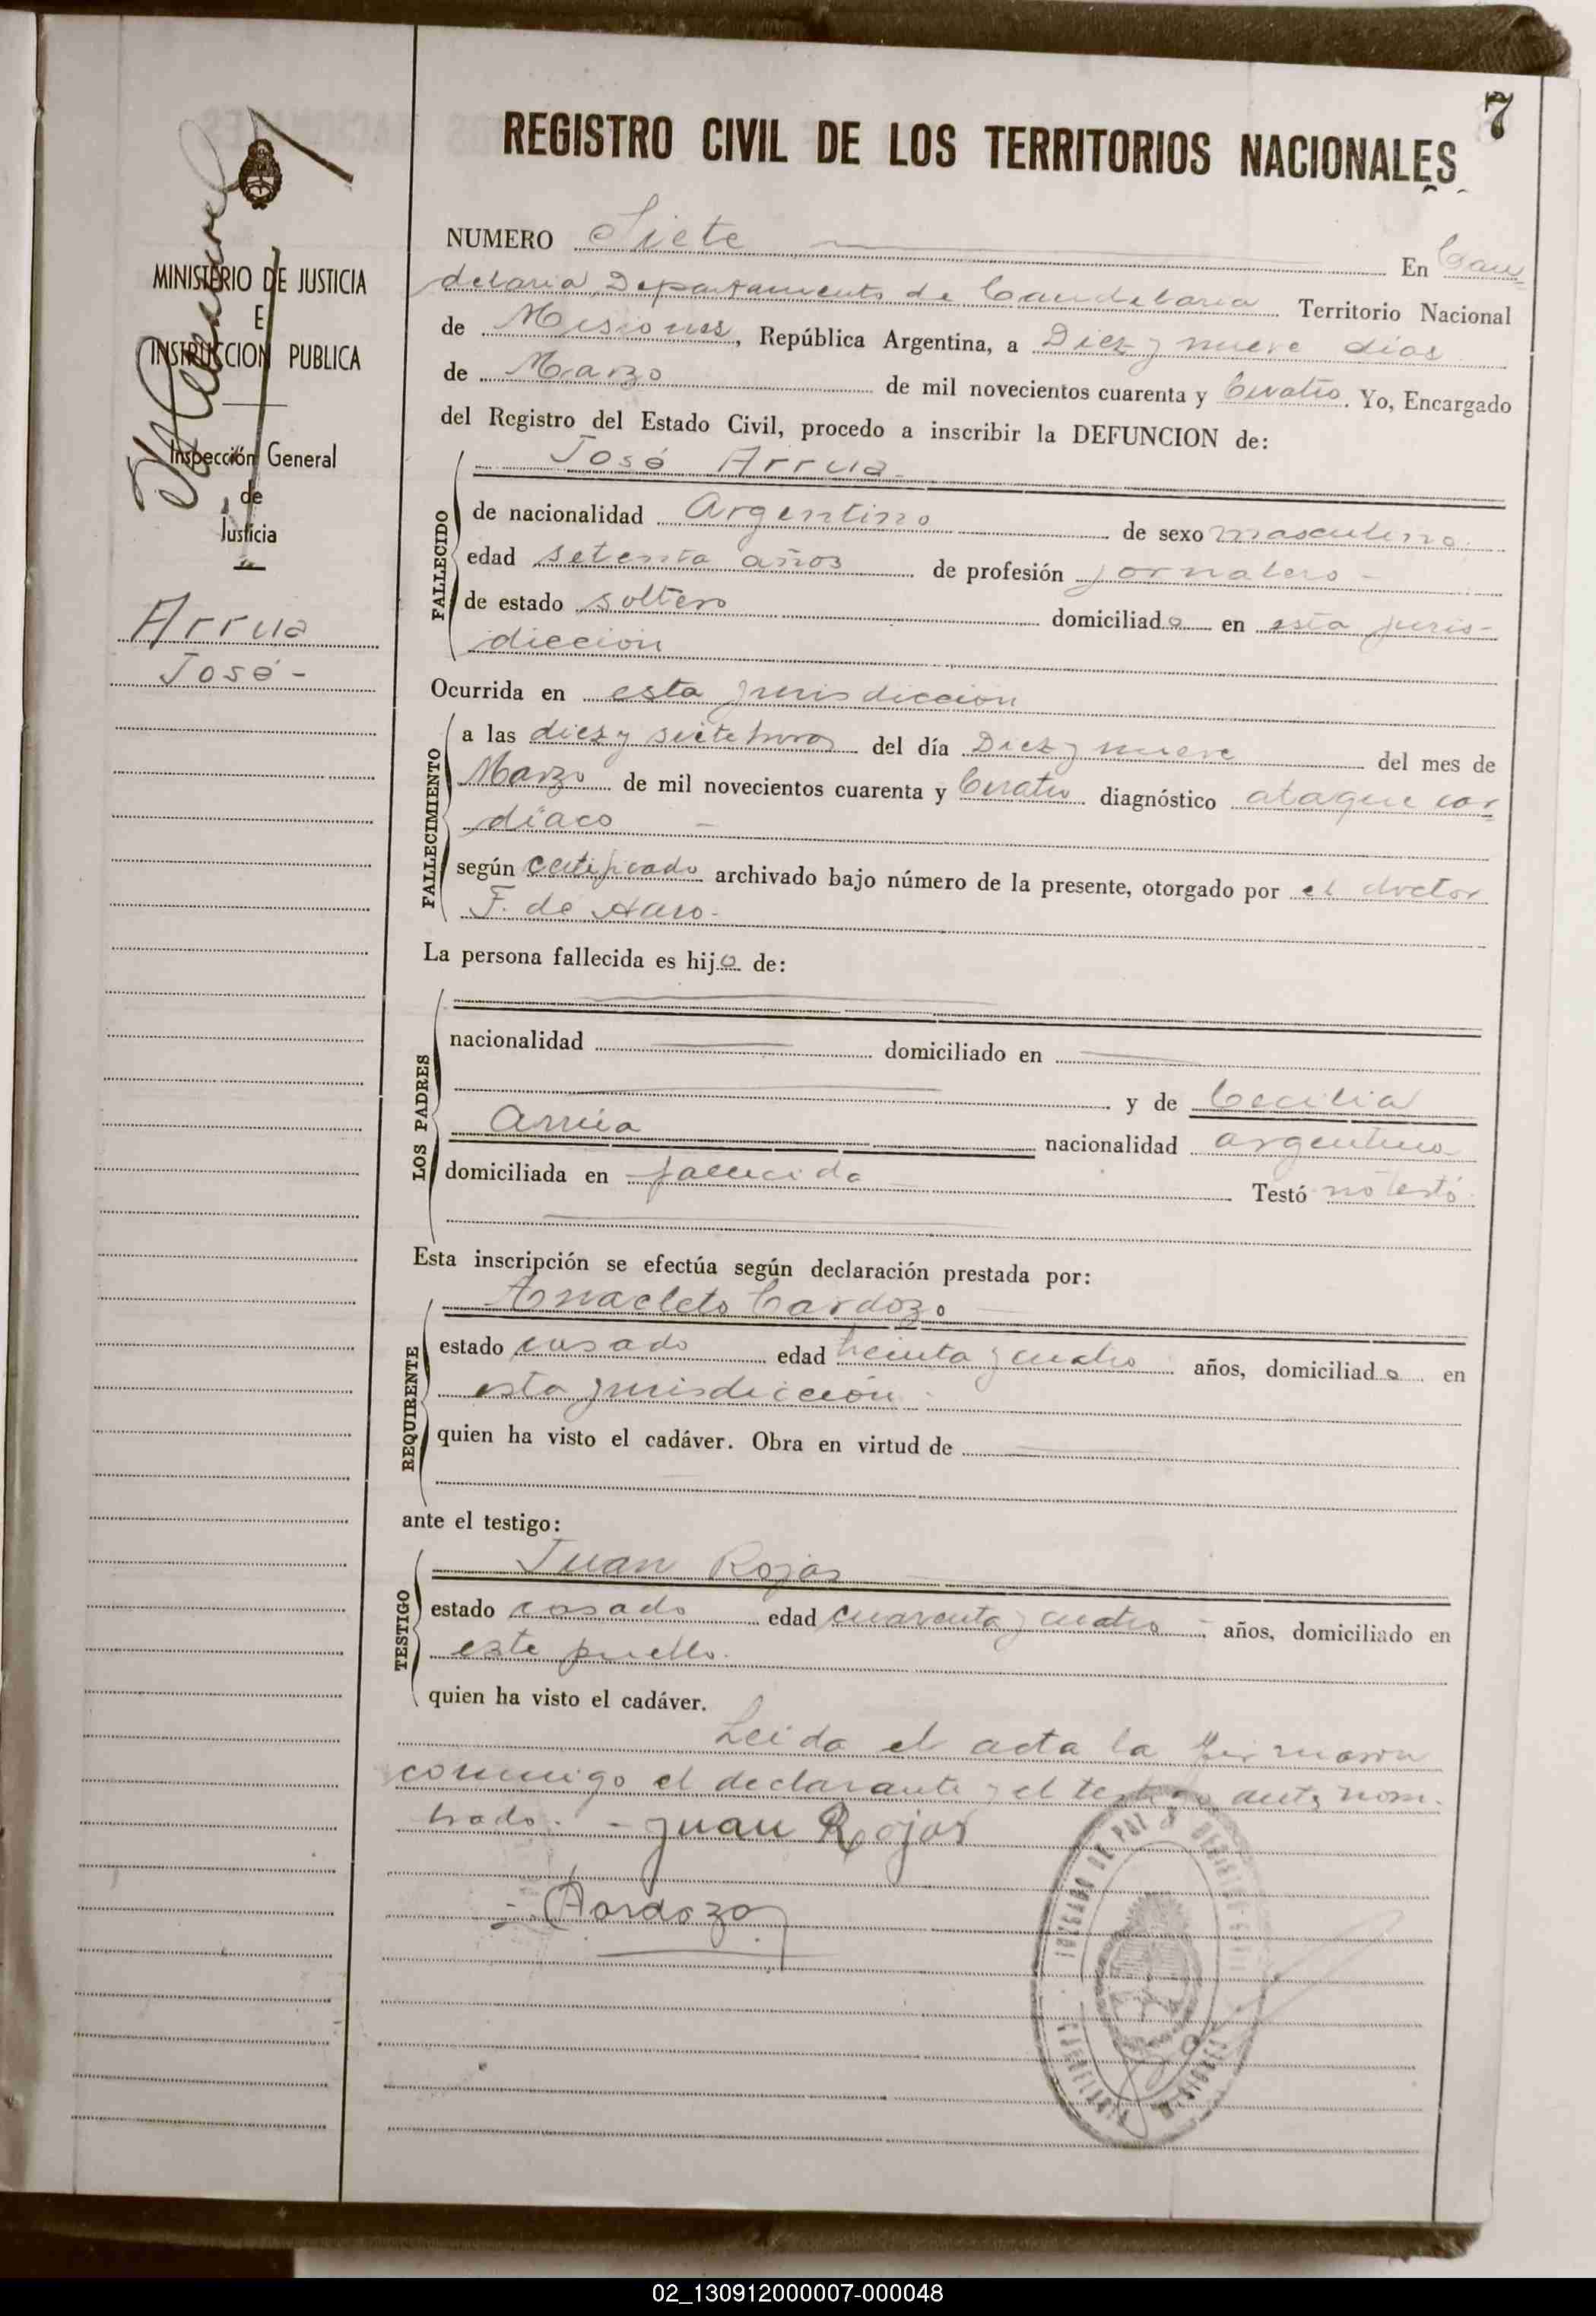 7
REGISTRO CIVIL DE LOS TERRITORIOS NACIONALES
MINISTERIO DE JUSTICIA
E
INSTRUCCION PUBLICA
Inspección General
de
Justicia
Arrua
José-
NUMERO Siete En Can
delaria Departamento de Candelaria Territorio Nacional
de Misiones, República Argentina, a Diez y nueve dias
de Marzo de mil novecientos cuarenta y Cuatro. Yo, Encargado
del Registro del Estado Civil, procedo a inscribir la DEFUNCION de:
José Arrua-
FALLECIDO
de nacionalidad Argentino de sexo masculino
edad setenta años de profesión jornalero-
de estado soltero domiciliado en esta juris-
diccion
Ocurrida en esta jurisdiccion
FALLECIMIENTO
a las diez y siete horas del día Diez y nueve del mes de
Marzo de mil novecientos cuarenta y Cuatro diagnóstico ataque car
diaco -
según certificado archivado bajo número de la presente, otorgado por el doctor
F. de Haro-
La persona fallecida es hijo de:
LOS PADRES
nacionalidad domiciliado en
y de Cecilia
Arrúa nacionalidad argentina
domiciliada en fallecida Testó no testó
Esta inscripción se efectúa según declaración prestada por:
Anacleto Cardozo
REQUIRENTE
estado casado edad treinta y cuatro años, domiciliado en
esta jurisdicción
quien ha visto el cadáver. Obra en virtud de
ante el testigo:
Juan Rojas
TESTIGO
estado casado edad cuarenta y cuatro años, domiciliado en
este pueblo.
quien ha visto el cadáver.
Leida el acta la firmaron
conmigo el declarante y el testigo ante nom-
brado. - Juan Rojas
- Cardozo
JUZGADO DE PAZ Y REGISTRO CIVIL
CANDELARIA MISIONES
02_130912000007-000048